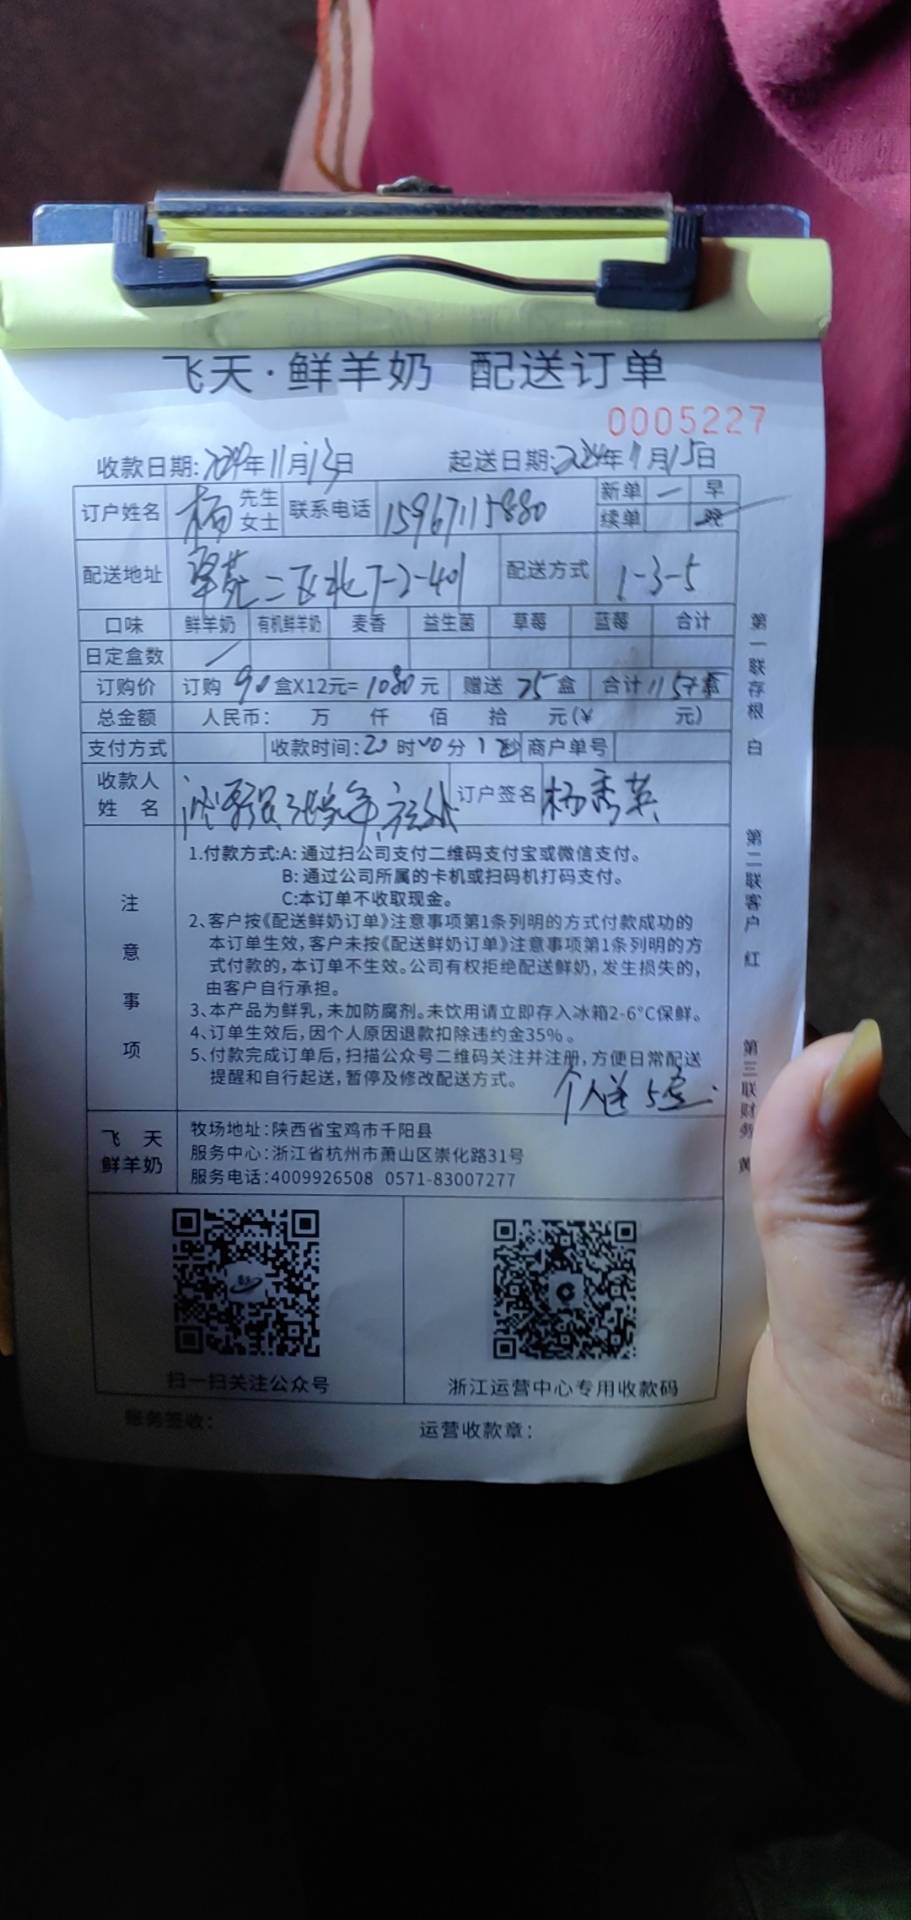 飞天·鲜羊奶 配送订单
0005227
收款日期:2024年11月13日 起送日期:2024年11月15日
订户姓名 杨 先生 女士 联系电话 15967115880 新单 一 早
续单 晚
配送地址 翠苑二区北7-2-401 配送方式 1-3-5
口味 鲜羊奶 有机鲜羊奶 麦香 益生菌 草莓 蓝莓 合计
日定盒数
订购价 订购 90 盒X12元= 1080 元 赠送 25 盒 合计 115 盒
总金额 人民币: 万 仟 佰 拾 元(¥ 元)
支付方式 收款时间:20时00分1秒 商户单号
收款人
姓 名 订户签名 杨秀英
注意事项
1.付款方式:A: 通过扫公司支付二维码支付宝或微信支付。
B: 通过公司所属的卡机或扫码机打码支付。
C:本订单不收取现金。
2、客户按《配送鲜奶订单》注意事项第1条列明的方式付款成功的
本订单生效,客户未按《配送鲜奶订单》注意事项第1条列明的方
式付款的,本订单不生效。公司有权拒绝配送鲜奶,发生损失的,
由客户自行承担。
3、本产品为鲜乳,未加防腐剂。未饮用请立即存入冰箱2-6°C保鲜。
4、订单生效后,因个人原因退款扣除违约金35%。
5、付款完成订单后,扫描公众号二维码关注并注册,方便日常配送
提醒和自行起送,暂停及修改配送方式。
个人送5盒
飞 天
鲜羊奶
牧场地址:陕西省宝鸡市千阳县
服务中心:浙江省杭州市萧山区崇化路31号
服务电话:4009926508 0571-83007277
扫一扫关注公众号 浙江运营中心专用收款码
服务签收: 运营收款章:
第一联存根 白
第二联客户 红
第三联财务 黄